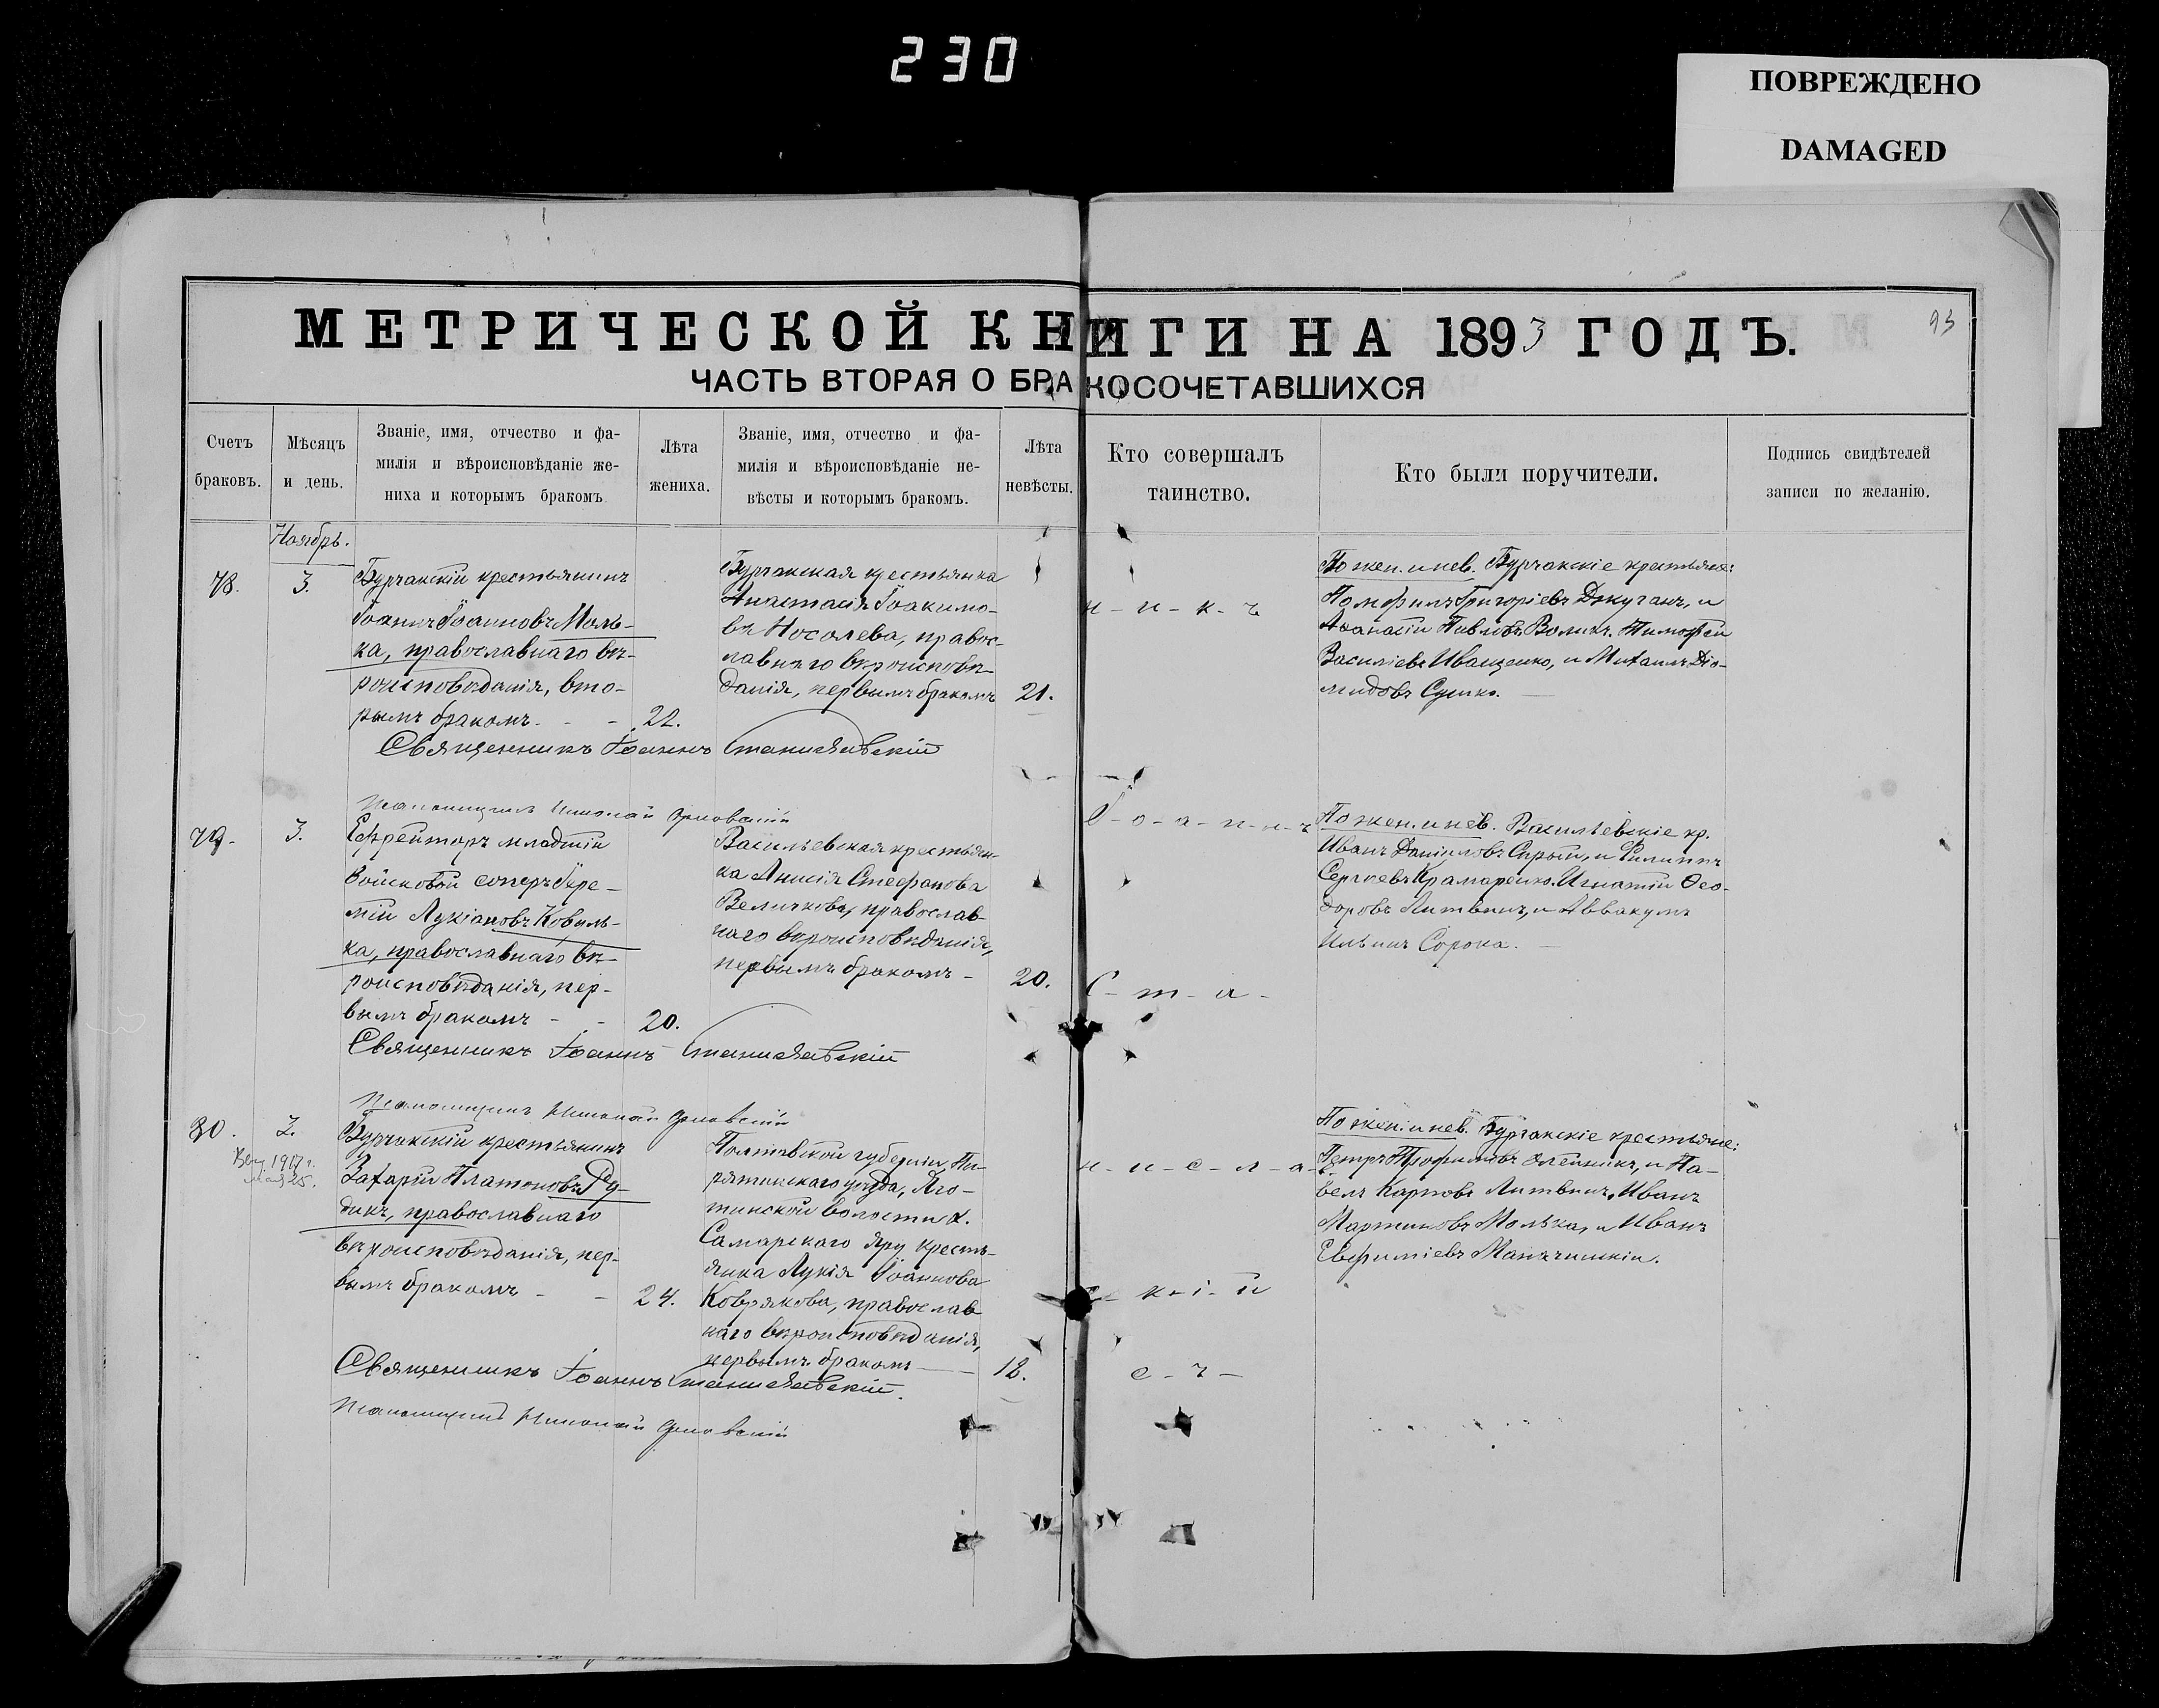 230
ПОВРЕЖДЕНО
DAMAGED
93
МЕТРИЧЕСКОЙ КНИГИ НА 1893 ГОДЪ.
ЧАСТЬ ВТОРАЯ О БРАКОСОЧЕТАВШИХСЯ
Счетъ
браковъ.
Мѣсяцъ
и день.
Званіе, имя, отчество и фа-
милія и вѣроисповѣданіе же-
ниха и которымъ бракомъ
Лѣта
жениха.
Званіе, имя, отчество и фа-
милія и вѣроисповѣданіе не-
вѣсты и которымъ бракомъ.
Лѣта
невѣсты.
Кто совершалъ
таинство.
Кто были поручители.
Подпись свидѣтелей
записи по желанію.
Ноябрь.
78.
3.
Бурчакскій крестьянинъ
Іоаннъ Іоанновъ Моль-
ка, православнаго вѣ-
роисповѣданія, вто-
рымъ бракомъ - -
22.
Бурчакская крестьянка
Анастасія Іоакимо-
ва Носолева, правос-
лавнаго вѣроисповѣ-
данія, первымъ бракомъ
21.
н - и - к - ъ
По жен. и нев. Бурчакскіе крестьяне:
Памфилъ Григоріевъ Джуганъ, и
Аѳанасій Павловъ Воликъ. Тимофей
Василіевъ Иващенко, и Михаилъ Діо-
мидовъ Сушко.
Священникъ Іоаннъ Станиславскій
Псаломщикъ Николай
79.
3.
Ефрейторъ младшій
войсковой Іере-
мій Лукіановъ Коваль-
ка, православнаго вѣ-
роисповѣданія, пер-
вымъ бракомъ - -
20.
Васильевская крестьян-
ка Анисія Стефанова
Величкова, православ-
наго вѣроисповѣданія,
первымъ бракомъ -
20.
І - о - а - н - н - ъ
С - т - а -
По жен. и нев. Васильевскіе кр.
Иванъ Даніиловъ Сирый, и Филиппъ
Сергіевъ Крамаренко. Игнатій Ѳео-
доровъ Литвинъ, и Аввакумъ
Ильинъ Сорока.
Священникъ Іоаннъ Станиславскій
Псаломщикъ Николай
80.
3.
1917 г.
25.
Бурчакскій крестьянинъ
Захарій Платоновъ Ру-
дикъ, православнаго
вѣроисповѣданія, пер-
вымъ бракомъ - -
24.
Полтавской губерніи, Пи-
рятинскаго уѣзда, Яго-
тинской волости х.
Самарскаго Яру кресть-
янка Лукія Іоаннова
Коврякова, православ-
наго вѣроисповѣданія,
первымъ бракомъ
18.
н - и - с - л - а -
с - к - і - й
По жен. и нев. Бурчакскіе крестьяне:
Петръ Трофимовъ Олейникъ, и Па-
велъ Карповъ Литвинъ. Иванъ
Мартиновъ Молька, и Иванъ
Евфиміевъ
Священникъ Іоаннъ Станиславскій.
Псаломщикъ Николай